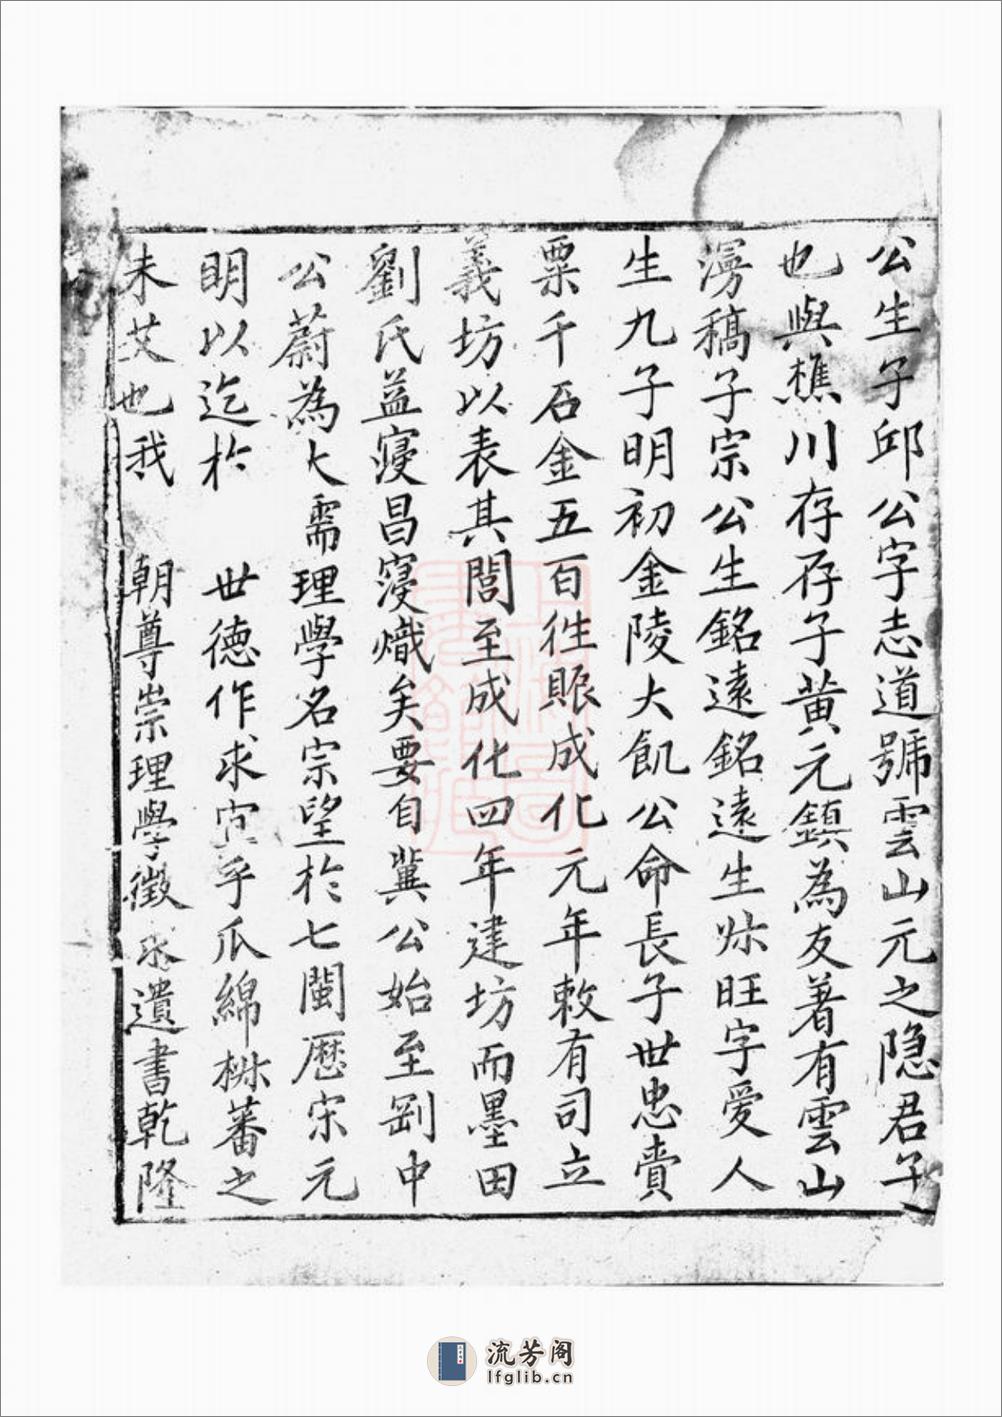 公生子邱公字志道號雲山元之隐君子
也與樵川存存子黄元鎮為友著有雲山
漫稿子宗公生銘遠銘遠生㷂旺字愛人
生九子明初金陵大飢公命長子世忠賫
粟千石金五百徃賑成化元年敕有司立
義坊以表其閭至成化四年建坊而墨田
劉氏益寖昌寖熾矣要自龔公始至剛中
公蔚為大需理學名宗望於七閩歷宋元
明以迄於 世德作求宜乎瓜綿椒蕃之
未艾也我 朝尊崇理學徵求遺書乾隆
流芳阁
lfglib.cn